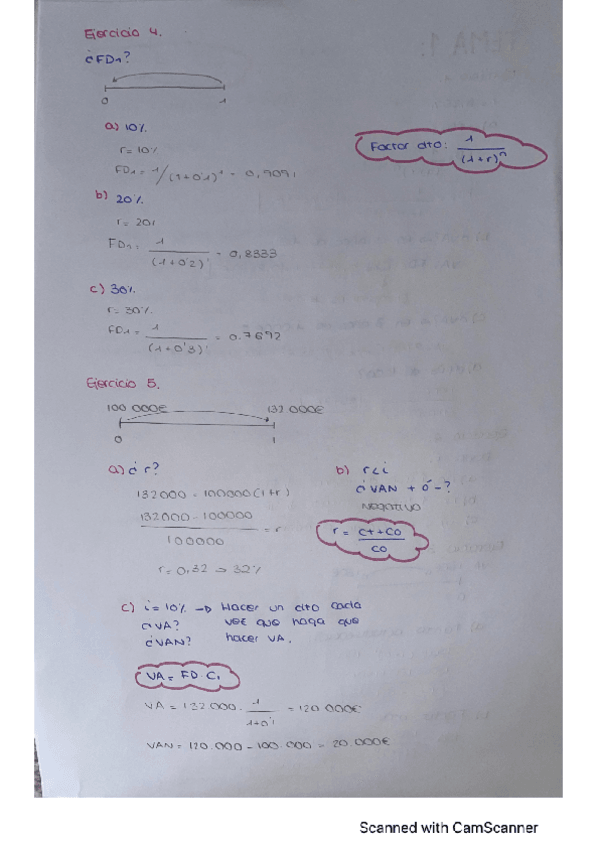 Ejercicio 4.
¿FD₁?
0 1
a) 10%
r = 10%
FD₁ = 1/(1+0'1)¹ = 0,9091
Factor dto: 1/(1+r)ⁿ
b) 20%
r = 20%
FD₁ = 1/(1+0'2)¹ = 0,8333
c) 30%
r = 30%
FD₁ = 1/(1+0'3)¹ = 0.7692
Ejercicio 5.
100 000€ 132.000€
0 1
a) ¿r?
132000 = 100000(1+r)
132000 - 100000
100000
= r
r = 0,32 → 32%
b) r<i
¿VAN + ó -?
NEGATIVO
r = C1+C0/C0
c) i = 10% → Hacer un dto cada
¿VA? vez que haga que
¿VAN? hacer VA.
VA = FD·C₁
VA = 132.000 · 1/1+0'1 = 120 000€
VAN = 120.000 - 100.000 = 20.000€
Scanned with CamScanner